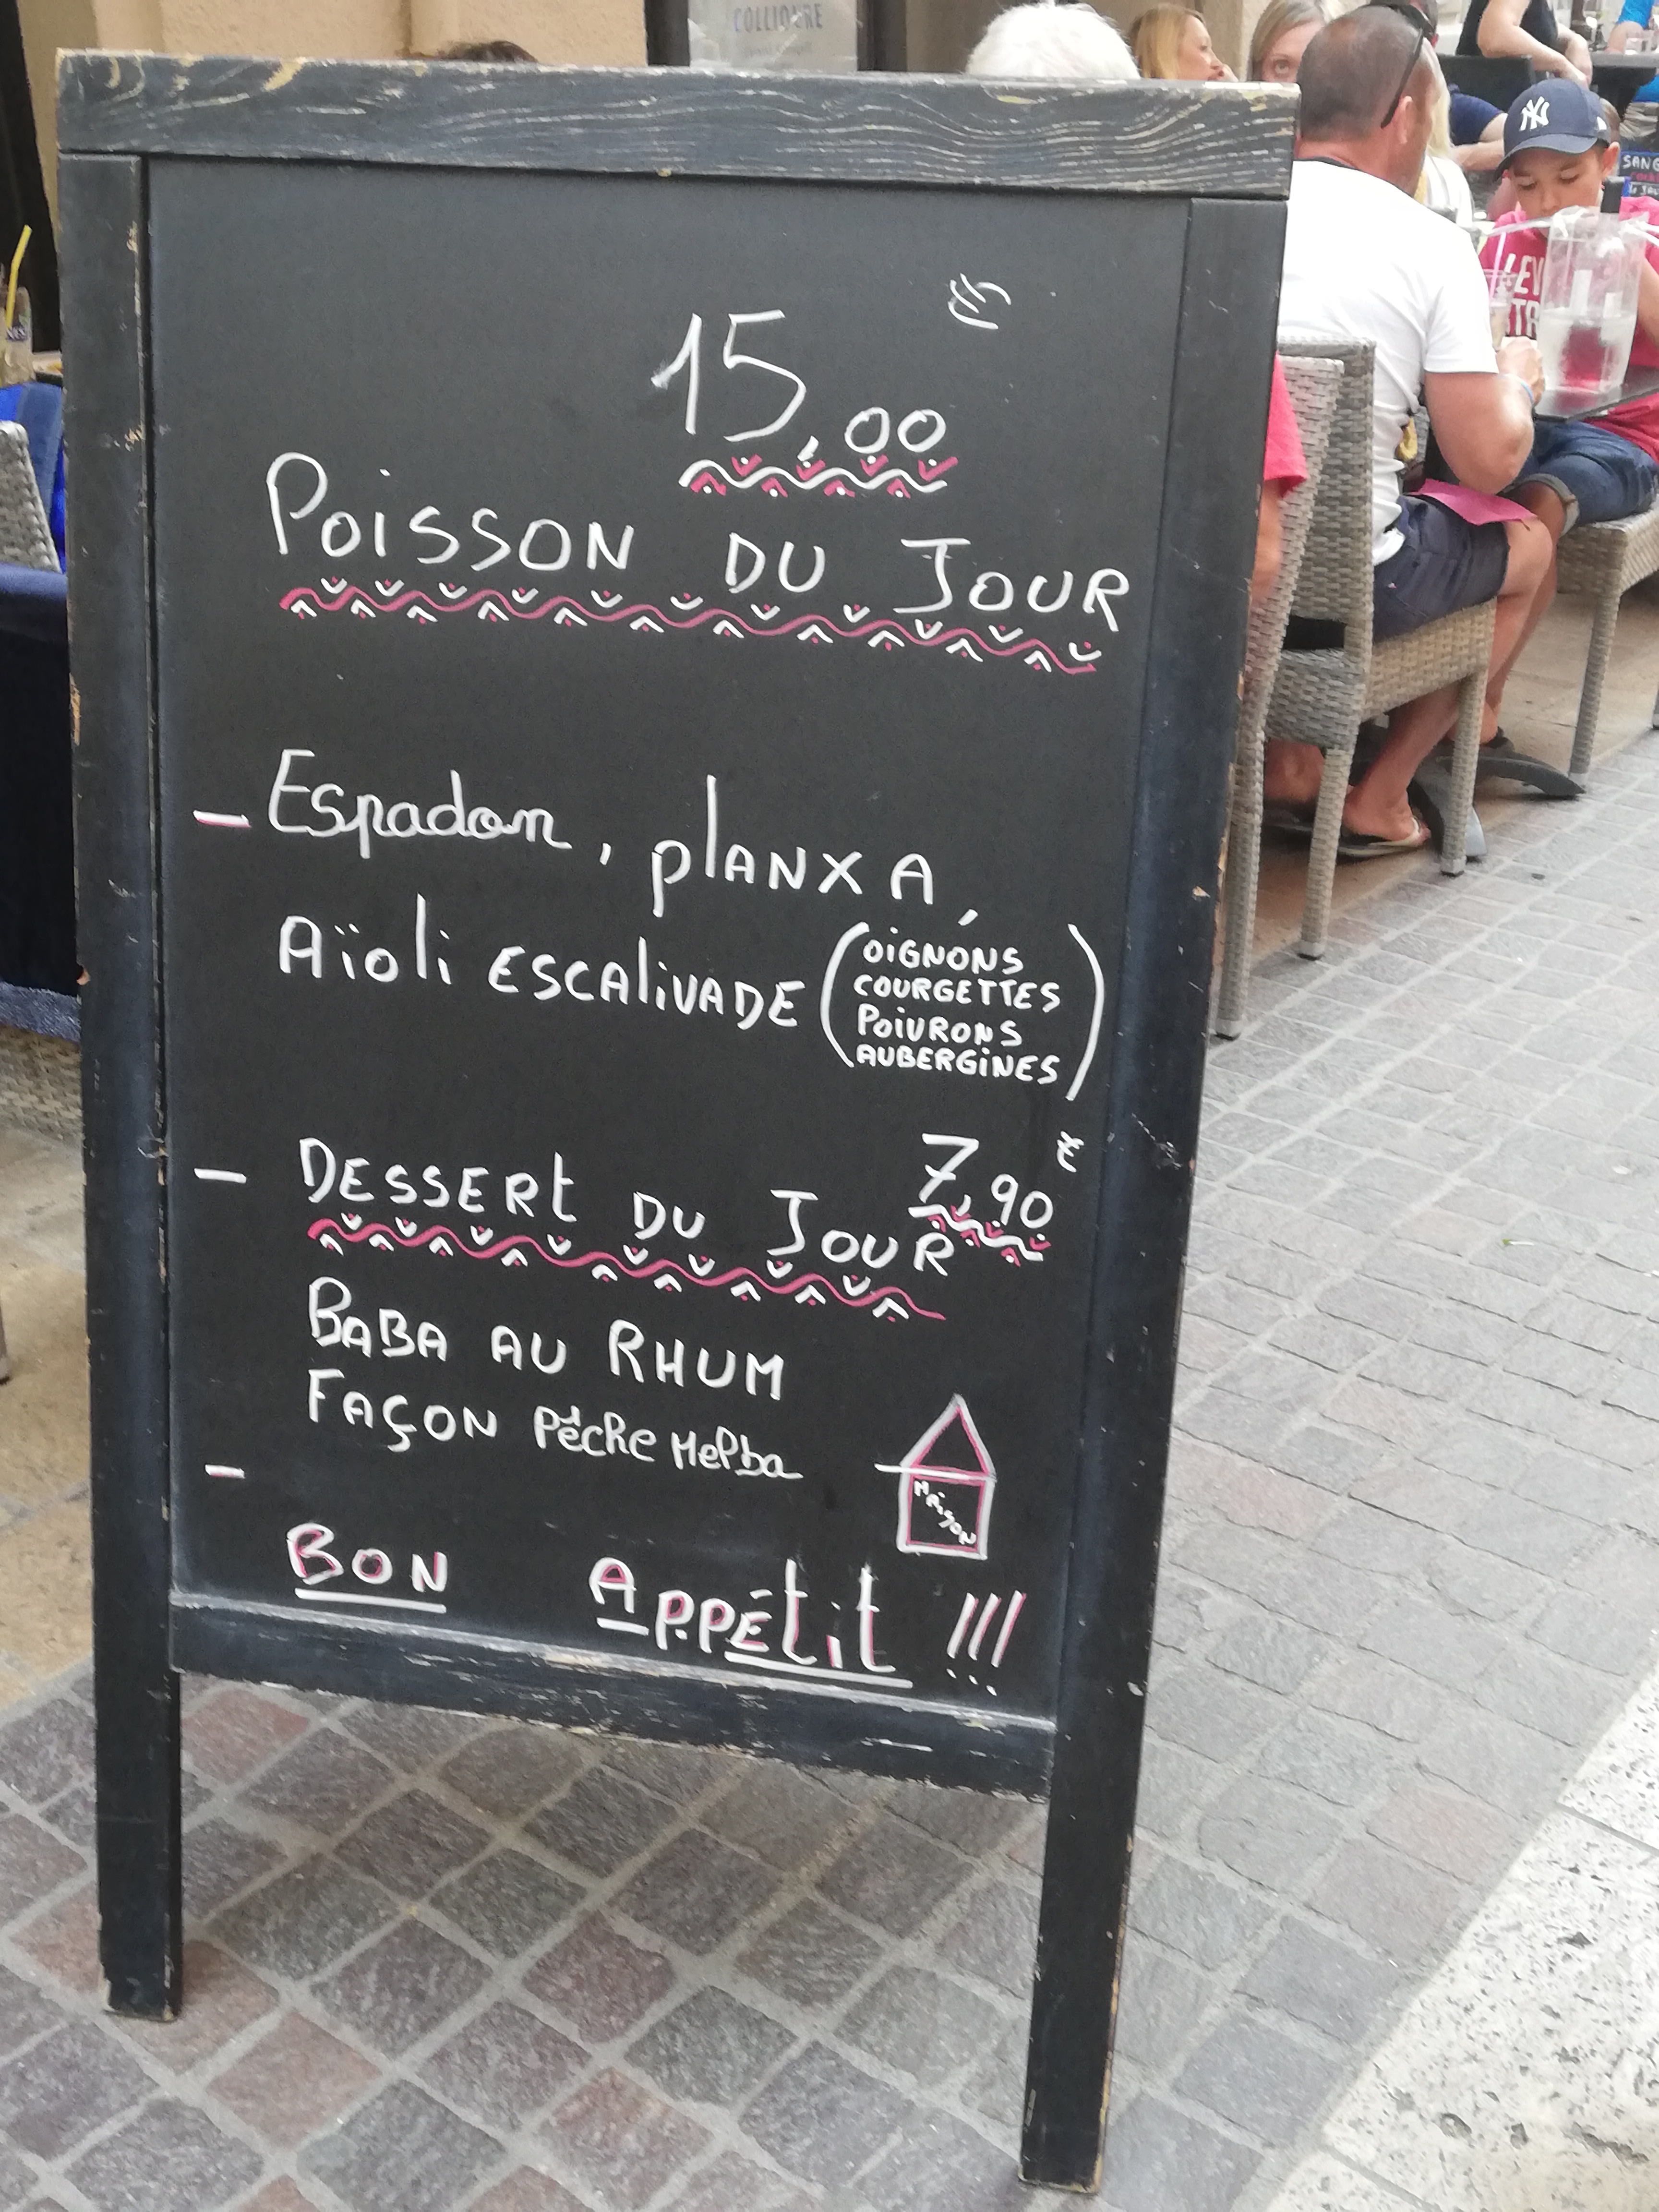 COLLIOURE
15,00 €
POISSON DU JOUR
- Espadon, plANXA,
Aïoli ESCAliVADE (OiGNONS
COURGETTES
POiVRONS
AUBERGiNES)
- DESSERt DU JOUR 7,90 €
BABA AU RHUM
FAÇON Pêche Melba
-
MAiSON
BON APPÉtit !!!
NY
SANG
LEV
TR